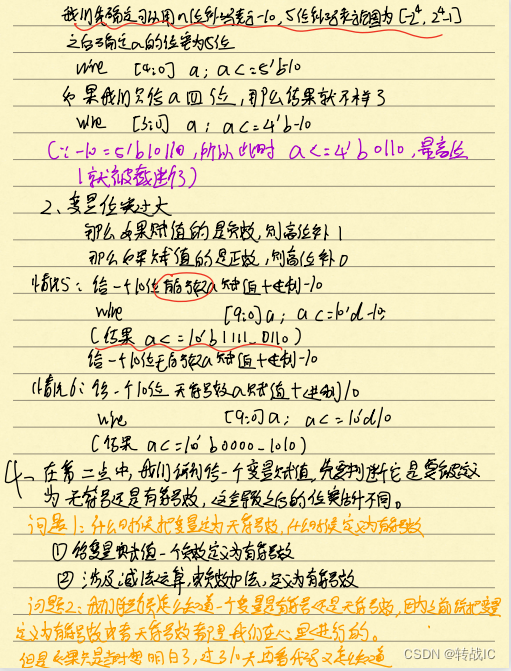 我们先确定可以用n位到场表示-10,5位到场表示范围为[-2⁴, 2⁴-1]
之后确定a的位宽为5位
wire [4:0] a; a <= 5'b-10
如果我们只给a四位,那么结果就不对了
wire [3:0] a; a <= 4'b-10
(∵ -10 = 5'b10110,所以此时 a <= 4'b0110,最高位
1就被截断了)
2、变量位宽过大
那么如果赋值的是负数,则高位补1
那么如果赋值的是正数,则高位补0
情况5:给一个10位有符号数a赋值十进制-10
wire [9:0] a; a <= 10'd-10;
(结果 a <= 10'b1111_0110)
给一个10位无符号数a赋值十进制-10
情况6:给一个10位无符号数a赋值十进制10
wire [9:0] a; a <= 10'd10
(结果 a <= 10'b0000_1010)
4、在第二点中,我们讲到给一个变量赋值,先要判断它是要被定义
为无符号还是有符号数,这会导致之后的位宽估计不同。
问题1:什么时候把变量定为无符号数,什么时候定义为有符号数
① 给变量赋值一个负数定义为有符号数
② 涉及减法运算,或负数加法,定义为有符号数
问题2:我们自己怎么知道一个变量是有符号还是无符号数,因为之前说把变量
定义为有符号数或者无符号数都是我们在心里进行的。
但是如果只是当时想明白了,过了10天再看代码又怎么知道
CSDN @转战IC